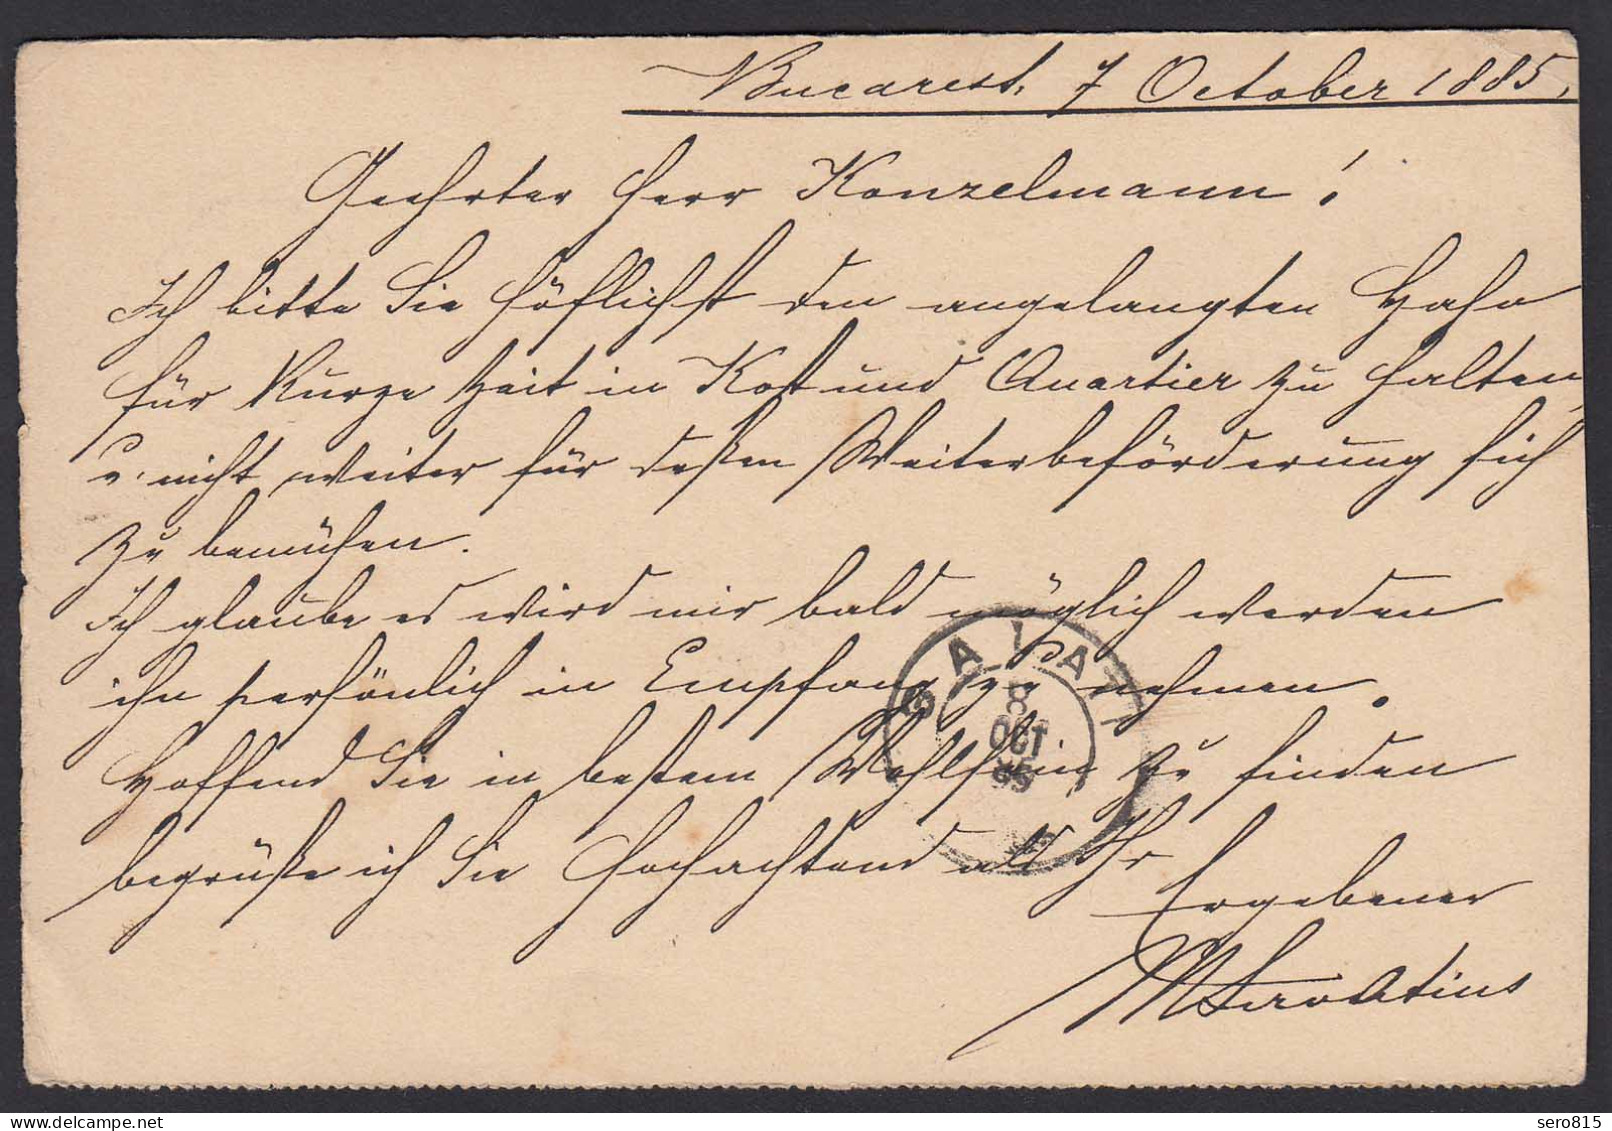 Bucarest, 7 October 1885.
Geehrter Herr Konzelmann!
Ich bitte Sie höflichst den angelangten Hahn
für Kurze Zeit in Kost und Quartier zu halten,
u. nicht weiter für deßen Weiterbeförderung sich
zu bemühen.
Ich glaube es wird mir bald möglich werden
ihn persönlich in Empfang zu nehmen.
Hoffend Sie in bestem Wohlsein zu finden
begrüße ich Sie Hochachtend als Ihr
Ergebener
GALATI
8
OCT
85
sero815